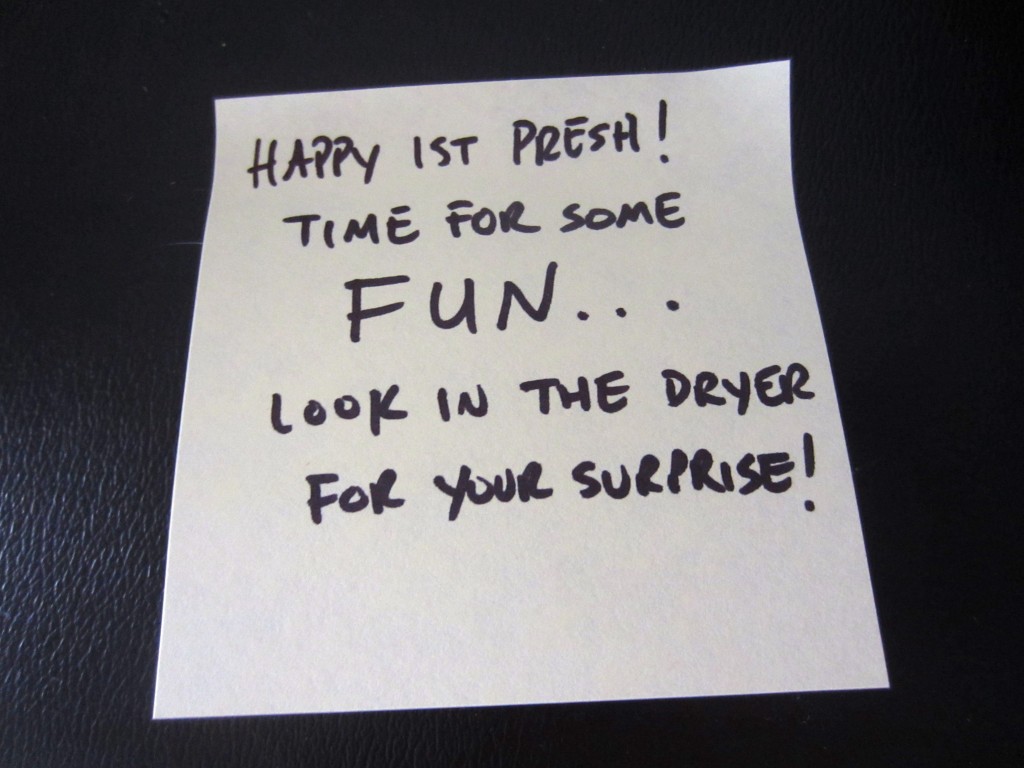 HAPPY 1ST PRESH!
TIME FOR SOME
FUN...
LOOK IN THE DRYER
FOR YOUR SURPRISE!